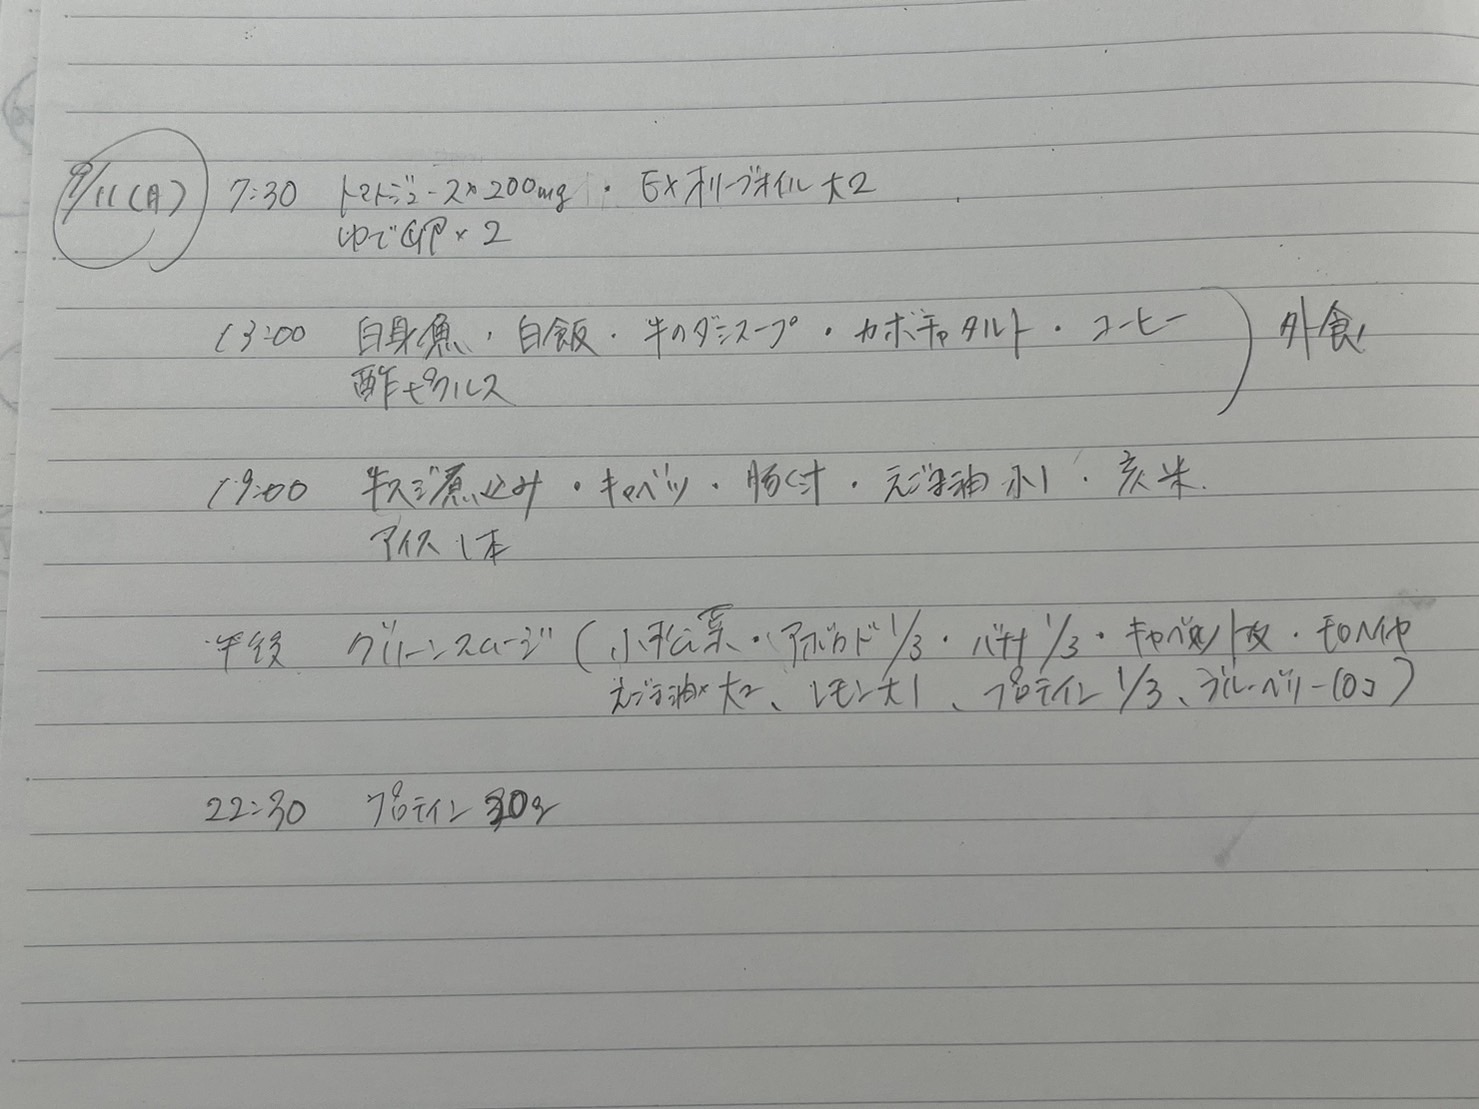 9/11(月) 7:30 トマトジュース×200mg ・ EXオリーブオイル大2
ゆで卵×2
13:00 白身魚・白飯・牛のダシスープ・カボチャタルト・コーヒー 外食
酢ピクルス
19:00 牛スジ煮込み・キャベツ・豚汁・えごま油 小1・玄米
アイス1本
午後 グリーンスムージ(小松菜・アボカド1/3・バナナ1/3・キャベツ1枚・モロヘイヤ
えごま油×大2、レモン大1、プロテイン1/3、ブルーベリー10コ)
22:30 プロテイン30g